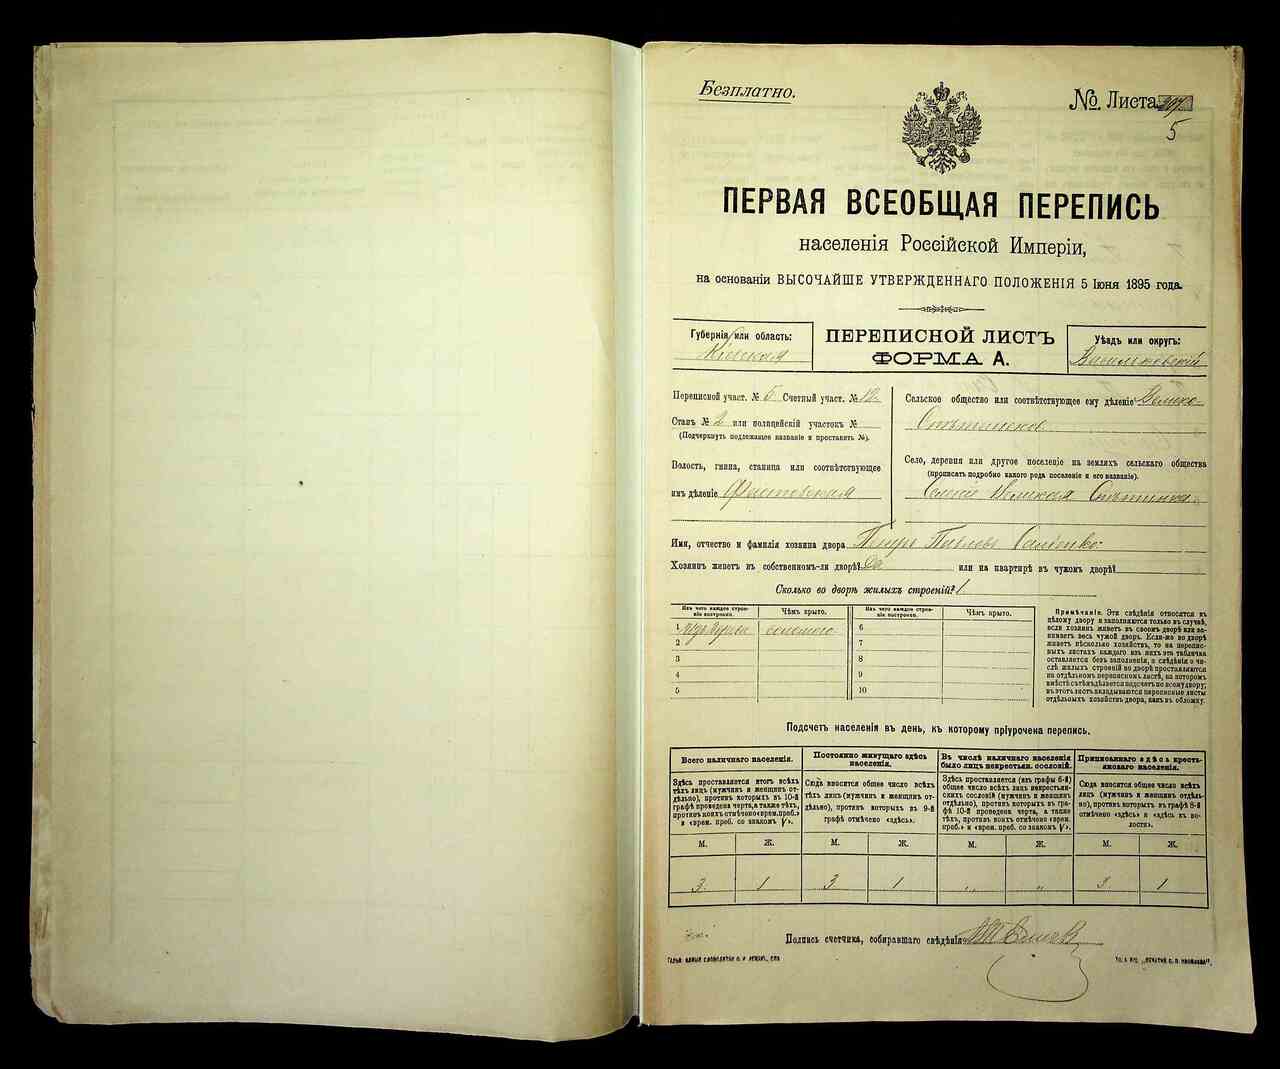 Безплатно.
№ Листа
5
ПЕРВАЯ ВСЕОБЩАЯ ПЕРЕПИСЬ
населенія Россійской Имперіи,
на основаніи ВЫСОЧАЙШЕ УТВЕРЖДЕННАГО ПОЛОЖЕНІЯ 5 Іюня 1895 года.
Губернія или область:
Кіевская
ПЕРЕПИСНОЙ ЛИСТЪ
ФОРМА А.
Уѣздъ или округъ:
Васильковскій
Переписной участ. № 5 Счетный участ. № 12
Станъ № 2 или полицейскій участокъ №
(Подчеркнуть подлежащее названіе и проставить №).
Волость, гмина, станица или соотвѣтствующее
имъ дѣленіе Фастовская
Сельское общество или соотвѣтствующее ему дѣленіе Велико-
Село, деревня или другое поселеніе на земляхъ сельскаго общества
(прописать подробно какого рода поселеніе и его названіе).
Великая Снѣтинка
Имя, отчество и фамилія хозяина двора Петръ Павловъ
Хозяинъ живетъ въ собственномъ-ли дворѣ? да или на квартирѣ въ чужомъ дворѣ?
Сколько во дворѣ жилыхъ строеній? 1
Изъ чего каждое строе-
ніе построено.
Чѣмъ крыто.
Изъ чего каждое строе-
ніе построено.
Чѣмъ крыто.
1 соломою 6
2 7
3 8
4 9
5 10
Примѣчаніе. Эти свѣдѣнія относятся къ
цѣлому двору и заполняются только въ случаѣ,
если хозяинъ живетъ въ своемъ дворѣ или за-
нимаетъ весь чужой дворъ. Если-же во дворѣ
живетъ нѣсколько хозяйствъ, то на перепис-
ныхъ листахъ каждаго изъ нихъ эта табличка
оставляется безъ заполненія, а свѣдѣнія о чи-
слѣ жилыхъ строеній во дворѣ проставляются
на отдѣльномъ переписномъ листѣ, на которомъ
вмѣстѣ съ тѣмъ дѣлается подсчетъ по всему двору;
въ этотъ листъ вкладываются переписные листы
отдѣльныхъ хозяйствъ двора, какъ въ обложку.
Подсчетъ населенія въ день, къ которому пріурочена перепись.
Всего наличнаго населенія.
Здѣсь проставляется итогъ всѣхъ
тѣхъ лицъ (мужчинъ и женщинъ от-
дѣльно), противъ которыхъ въ 10-й
графѣ проведена черта, а также тѣхъ,
противъ коихъ отмѣчено «врем. преб.»
и «врем. преб. со знакомъ V».
Постоянно живущаго здѣсь
населенія.
Сюда вносится общее число всѣхъ
тѣхъ лицъ (мужчинъ и женщинъ от-
дѣльно), противъ которыхъ въ 9-й
графѣ отмѣчено «здѣсь».
Въ числѣ наличнаго населенія
было лицъ некрестьян. сословій.
Здѣсь проставляется (изъ графы 6-й)
общее число всѣхъ лицъ некрестьян-
скихъ сословій (мужчинъ и женщинъ
отдѣльно), противъ которыхъ въ гра-
фѣ 10-й проведена черта, а также
тѣхъ, противъ коихъ отмѣчено «врем.
преб.» и «врем. преб. со знакомъ V».
Приписаннаго здѣсь кресть-
янскаго населенія.
Сюда вносится общее число всѣхъ
лицъ (мужчинъ и женщинъ отдѣль-
но), противъ которыхъ въ графѣ 8-й
отмѣчено «здѣсь» и «здѣсь въ во-
лости».
М. Ж. М. Ж. М. Ж. М. Ж.
3 1 3 1 „ „ 3 1
Подпись счетчика, собиравшаго свѣдѣнія